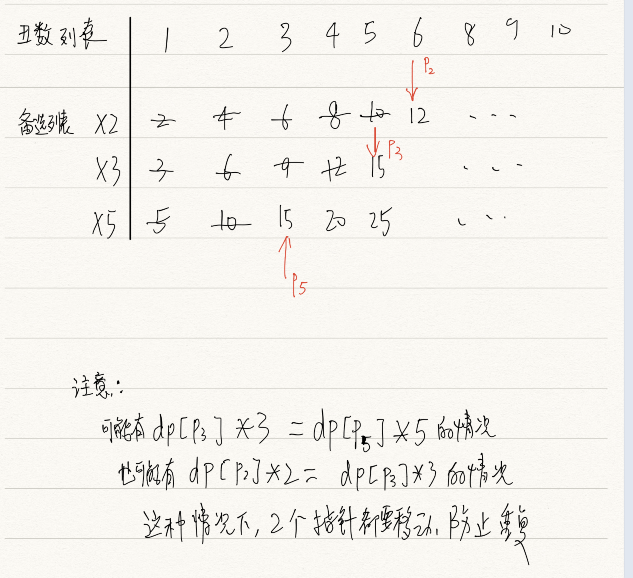 丑数列表 1 2 3 4 5 6 8 9 10
P2
备选列表 X2 2 4 6 8 10 12 ...
P3
X3 3 6 9 12 15 ...
X5 5 10 15 20 25 ...
P5
注意:
可能有 dp[P3] * 3 = dp[P5] * 5 的情况
也可能有 dp[P2] * 2 = dp[P3] * 3 的情况
这种情况下, 2个指针都要移动, 防止重复